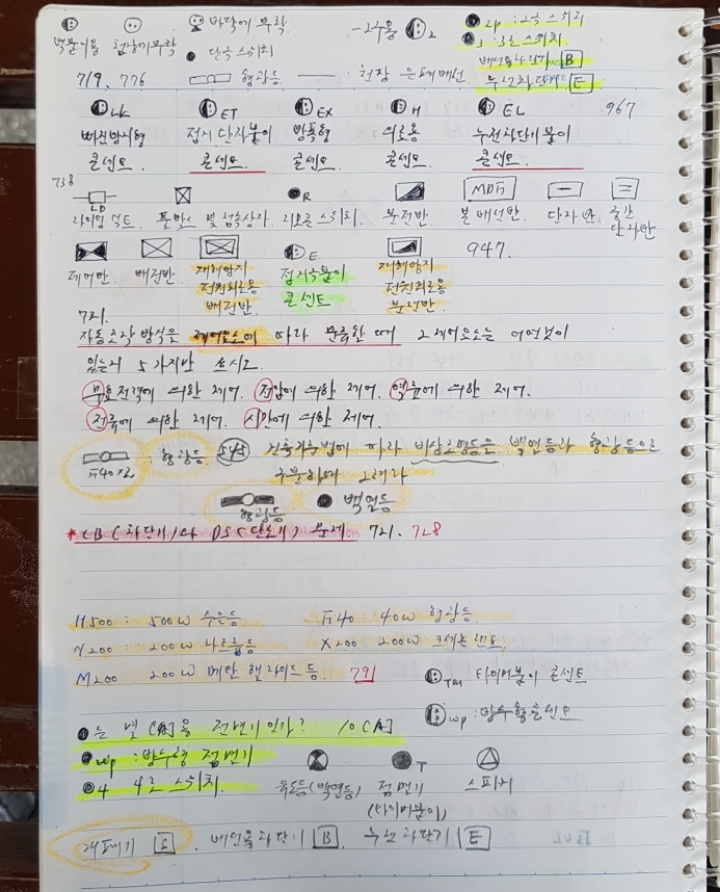 벽붙이용 천장에 부착 바닥에 부착 2구용 2 2P : 2극 스위치
단극 스위치 3 : 3로 스위치
배선용차단기 B
719, 776 형광등 : 천장 은폐배선 누전차단기 E
LK ET EX H EL 967
빠짐방지형 접지단자붙이 방폭형 의료용 누전차단기붙이
콘센트 콘센트. 콘센트. 콘센트. 콘센트.
738
LD R MDF
라이팅 덕트. 풀박스 및 접속상자. 리모콘 스위치. 분전반. 본 배선반. 단자반. 중간 단자반
E 947.
제어반. 배전반. 재해방지 전원회로용 배전반. 접지극붙이 콘센트 재해방지 전원회로용 분전반.
721.
자동조작 방식은 제어요소에 따라 분류한 때 그 제어요소는 어떤것이
있는지 5가지만 쓰시오.
무효전력에 의한 제어. 전압에 의한 제어. 역률에 의한 제어.
전류에 의한 제어. 시간에 의한 제어.
F40×2 : 형광등 545 건축기준법에 따라 비상조명등을 백열등과 형광등으로
구분하여 그려라
형광등 백열등
* CB(차단기)와 DS(단로기) 문제. 721. 728
H500 : 500W 수은등 F40 40W 형광등
N200 : 200W 나트륨등 X200 200W 크세논 램프
M200 200W 메탈 핼라이드 등. 791 TM 타이머붙이 콘센트
WP : 방수형콘센트
는 몇 [A]용 전멸기인가? 10[A]
WP : 방수형 점멸기
4 4로 스위치. T
유도등(백열등) 점멸기 (타이머붙이) 스피커
개폐기 S . 배선용차단기 B . 누전차단기 E